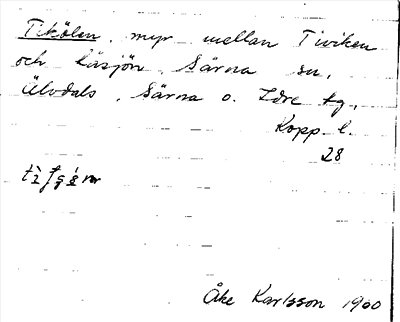 Tikölen, myr mellan Tiviken
och Låsjön, Särna sn,
Älvdals, Särna o. Idre tg,
Kopp. l.
28
Åke Karlsson 1960